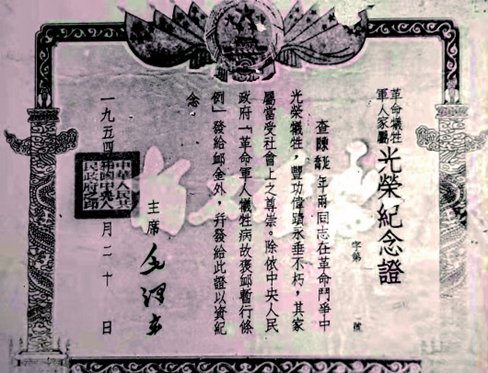 革命犧牲
軍人家屬
光榮紀念證
字第 號
查陳 同志在革命鬥爭中
光榮犧牲,豐功偉蹟永垂不朽,其家
屬當受社會上之尊崇。除依中央人民
政府「革命軍人犧牲病故褒卹暫行條
例」發給卹金外,幷發給此證以資紀
念
主席 毛澤東
一九五四年 月二十日
中華人民共
和國中央人
民政府